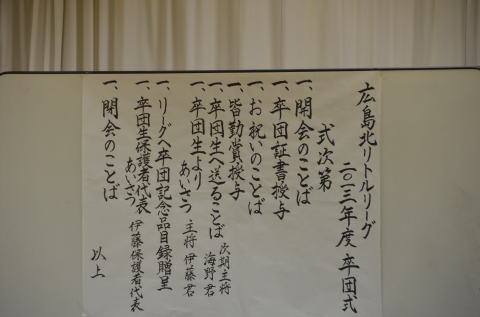 広島北リトルリーグ
二〇一三年度 卒団式
式次第
一、開会のことば
一、卒団証書授与
一、お祝いのことば
一、皆勤賞授与
一、卒団生へ送ることば 次期主将 海野君
一、卒団生より あいさつ 主将 伊藤君
一、リーグへ卒団記念品目録贈呈
一、卒団生保護者代表 あいさつ 伊藤保護者代表
一、閉会のことば
以上